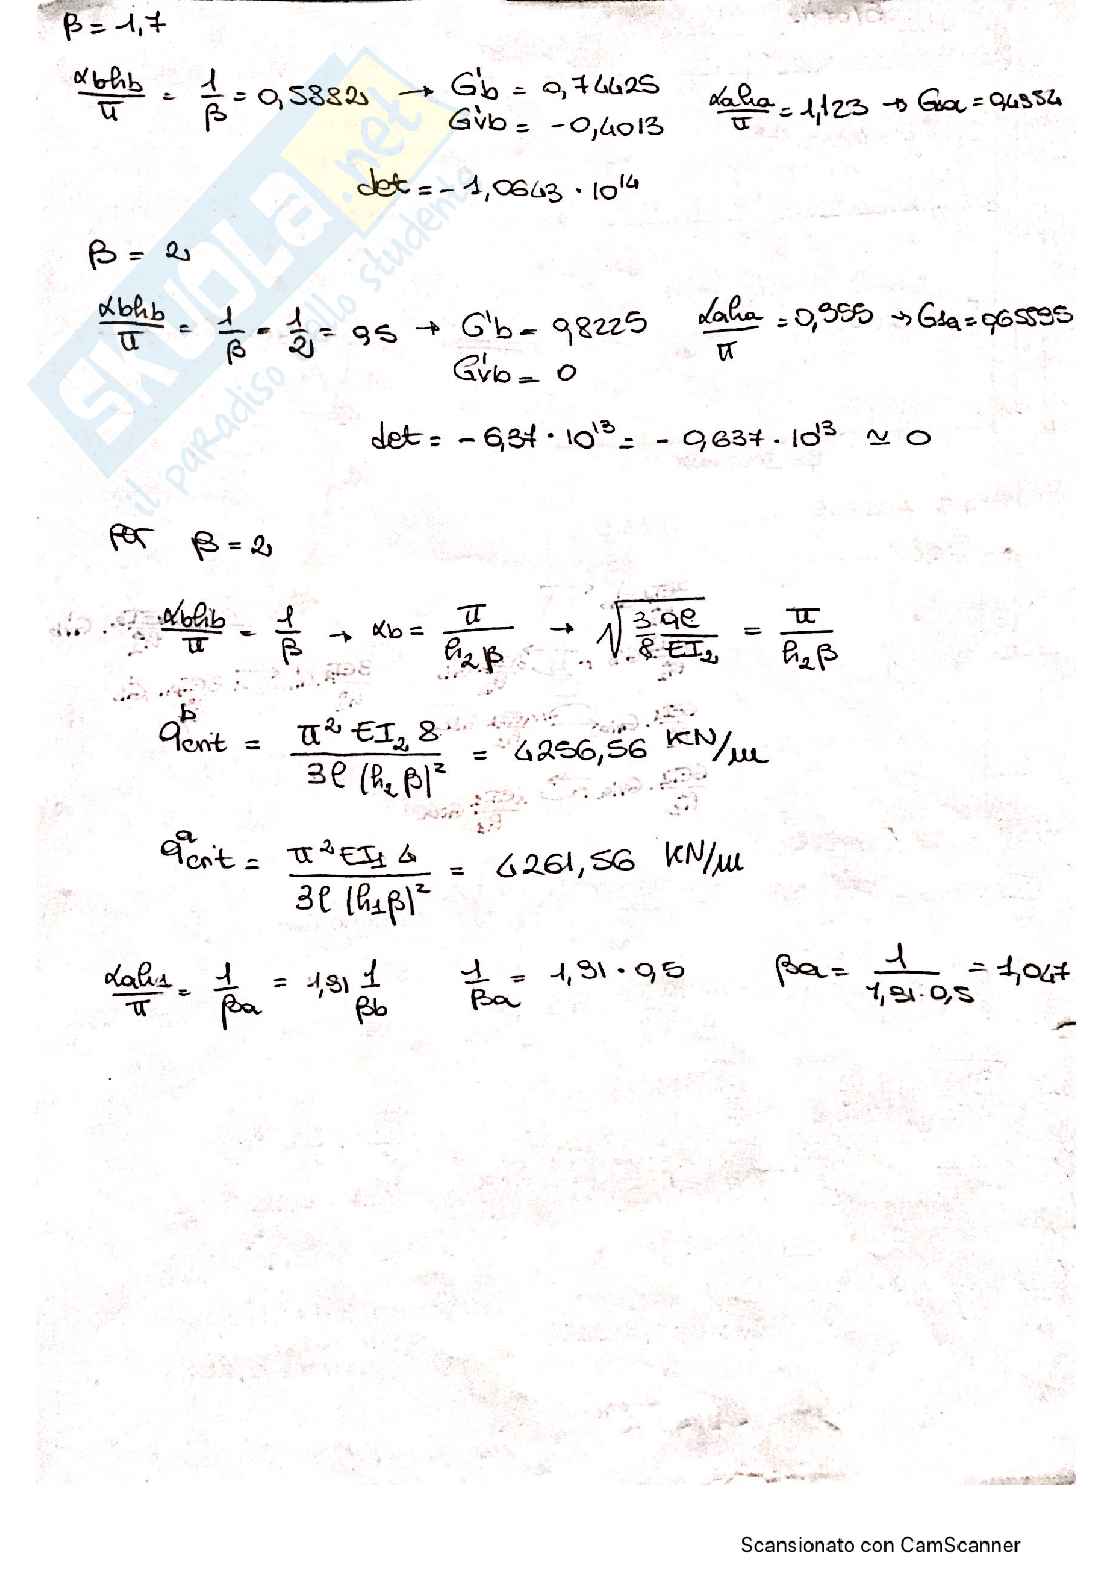 β = 1,7
αbhb/π = 1/β = 0,5882 → G'b = 0,74425 αaha/π = 1,123 → G1a = 0,4954
G'vb = -0,4013
det = -1,0643 · 10^14
β = 2
αbhb/π = 1/β = 1/2 = 0,5 → G'b = 0,8225 αaha/π = 0,955 → G1a = 0,65595
G'vb = 0
det = -6,37 · 10^13 = -0,637 · 10^13 ≃ 0
per β = 2
αbhb/π = 1/β → αb = π/(h2β) → √(3/8 qℓ/EI2) = π/(h2β)
q^b crit = π² EI2 8 / 3ℓ (h2 β)² = 4256,56 KN/m
q^a crit = π² EI1 4 / 3ℓ (h1 β)² = 4261,56 KN/m
αah1/π = 1/βa = 1,91 1/βb 1/βa = 1,91 · 0,5 βa = 1/(1,91 · 0,5) = 1,047
SKUOLA.net
il paradiso dello studente
Scansionato con CamScanner